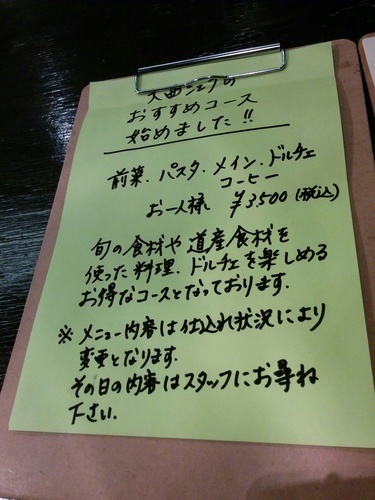 大西シェフの
おすすめコース
始めました!!
前菜.パスタ.メイン.ドルチェ
コーヒー
お一人様 ¥3,500(税込)
旬の食材や道産食材を
使った料理.ドルチェを楽しめる
お得なコースとなっております.
※メニュー内容は仕入れ状況により
変更となります.
その日の内容はスタッフにお尋ね
下さい.